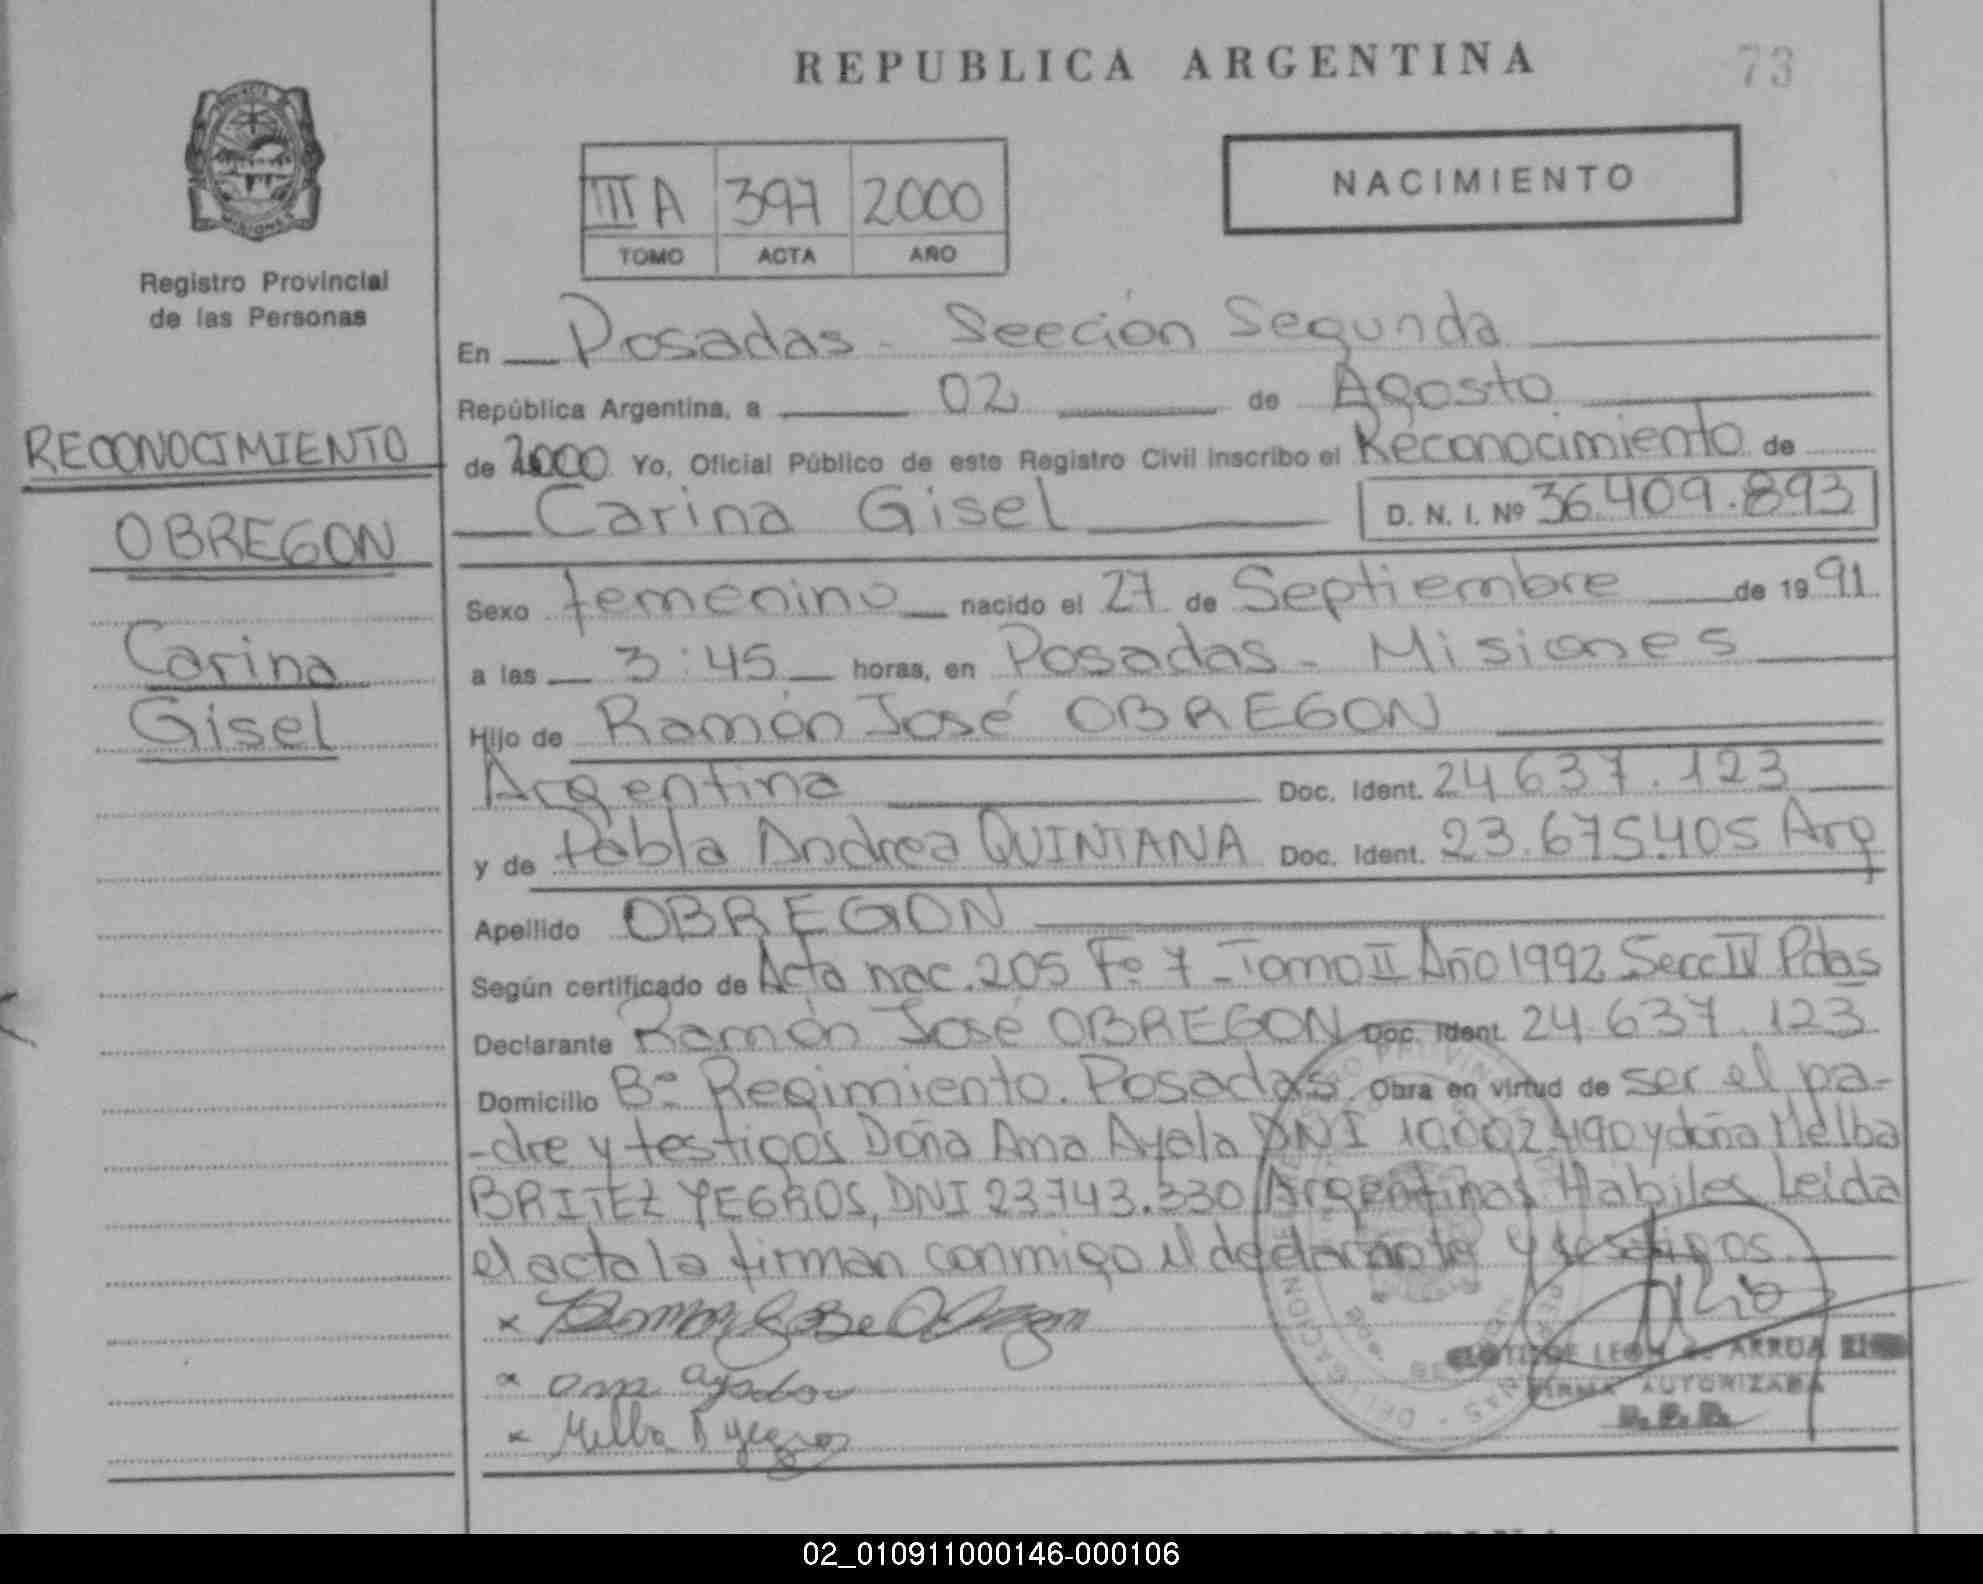 REPUBLICA ARGENTINA
73
NACIMIENTO
III A 397 2000
TOMO ACTA AÑO
Registro Provincial
de las Personas
RECONOCIMIENTO
OBREGON
Carina
Gisel
En Posadas - Seeción Segunda
República Argentina, a 02 de Agosto
de 2000 Yo, Oficial Público de este Registro Civil inscribo el Reconocimiento de
Carina Gisel D. N. I. Nº 36.409.893
Sexo femenino nacido el 27 de Septiembre de 1991
a las 3:45 horas, en Posadas - Misiones
Hijo de Ramón José OBREGON
Argentina Doc. Ident. 24 637.123
y de Pabla Andrea QUINTANA Doc. Ident. 23.675.405 Arg
Apellido OBREGON
Según certificado de Acta nac. 205 Fº 7 - Tomo II Año 1992 Secc IV Pdas
Declarante Ramón José OBREGON Doc. Ident. 24 637.123
Domicilio Bº Regimiento. Posadas. Obra en virtud de ser el pa-
-dre y testigos Doña Ana Ayala DNI 10.002.490 y doña Melba
BRITEZ YEGROS, DNI 23.743.330 Argentinas Habiles Leida
el acta la firman conmigo el declarante y testigos.
x Ramon Jose Obregon
x
x Melba B yegros
LEON de ARRUA
FIRMA AUTORIZADA
R.P.P.
02_010911000146-000106